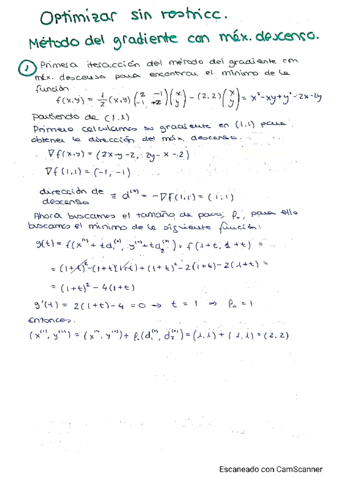 Optimizar sin restricc.
Método del gradiente con máx. descenso.
① Primera iteracción del método del gradiente con
máx. descenso para encontrar el mínimo de la
función
f(x,y) = 1/2 (x,y) (2 -1 / -1 2) (x / y) - (2,2) (x / y) = x² - xy + y² - 2x - 2y
Partiendo de (1,1)
Primero calculamos su gradiente en (1,1) para
obtener la dirección del máx. descenso.
∇f(x,y) = (2x-y-2, 2y-x-2)
∇f(1,1) = (-1,-1)
dirección de descenso ≡ d⁽⁰⁾ = -∇f(1,1) = (1,1)
Ahora buscamos el tamaño de paso, ρ₀, para ello
buscamos el mínimo de la siguiente función:
g(t) = f(x⁽⁰⁾ + td₁⁽⁰⁾, y⁽⁰⁾ + td₂⁽⁰⁾) = f(1+t, 1+t) =
= (1+t)² - (1+t)(1+t) + (1+t)² - 2(1+t) - 2(1+t) =
= (1+t)² - 4(1+t)
g'(t) = 2(1+t) - 4 = 0 → t = 1 ⇒ ρ₀ = 1
Entonces:
(x⁽¹⁾, y⁽¹⁾) = (x⁽⁰⁾, y⁽⁰⁾) + ρ₀(d₁⁽⁰⁾, d₂⁽⁰⁾) = (1,1) + (1,1) = (2,2)
Escaneado con CamScanner